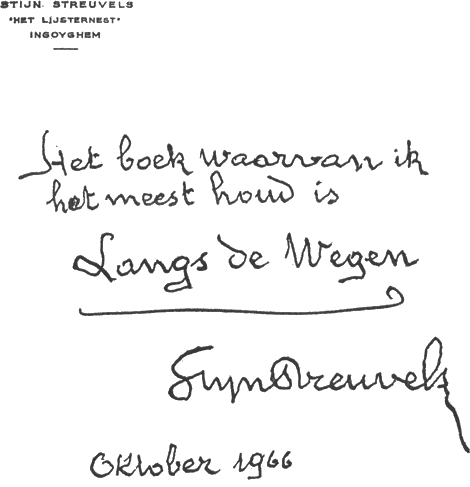 STIJN STREUVELS
"HET LIJSTERNEST"
INGOYGHEM
Het boek waarvan ik
het meest houd is
Langs de Wegen
Stijn Streuvels
Oktober 1966